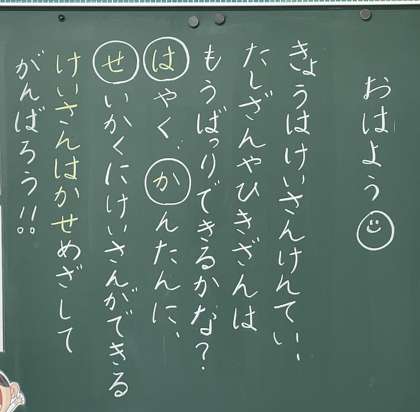 おはよう
きょうはけいさんけんてい、
たしざんやひきざんは
もうばっちりできるかな？
はやく、かんたんに、
せいかくにけいさんができる
けいさんはかせめざして
がんばろう！！